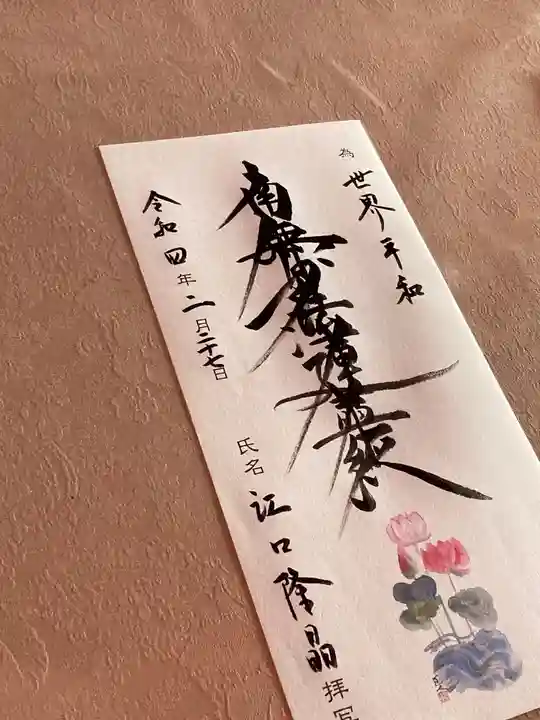 為 世界平和
南無妙法蓮華経
令和四年二月二十七日
氏名 江口隆晶 拝写